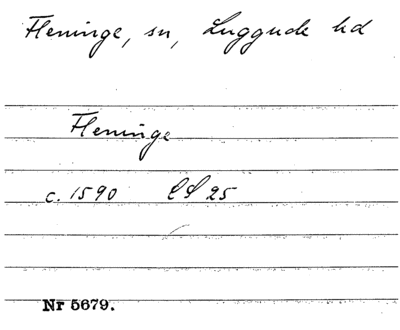 Fleninge, sn, Luggude hd
Fleninge
c. 1590 LS 25
Nr 5679.